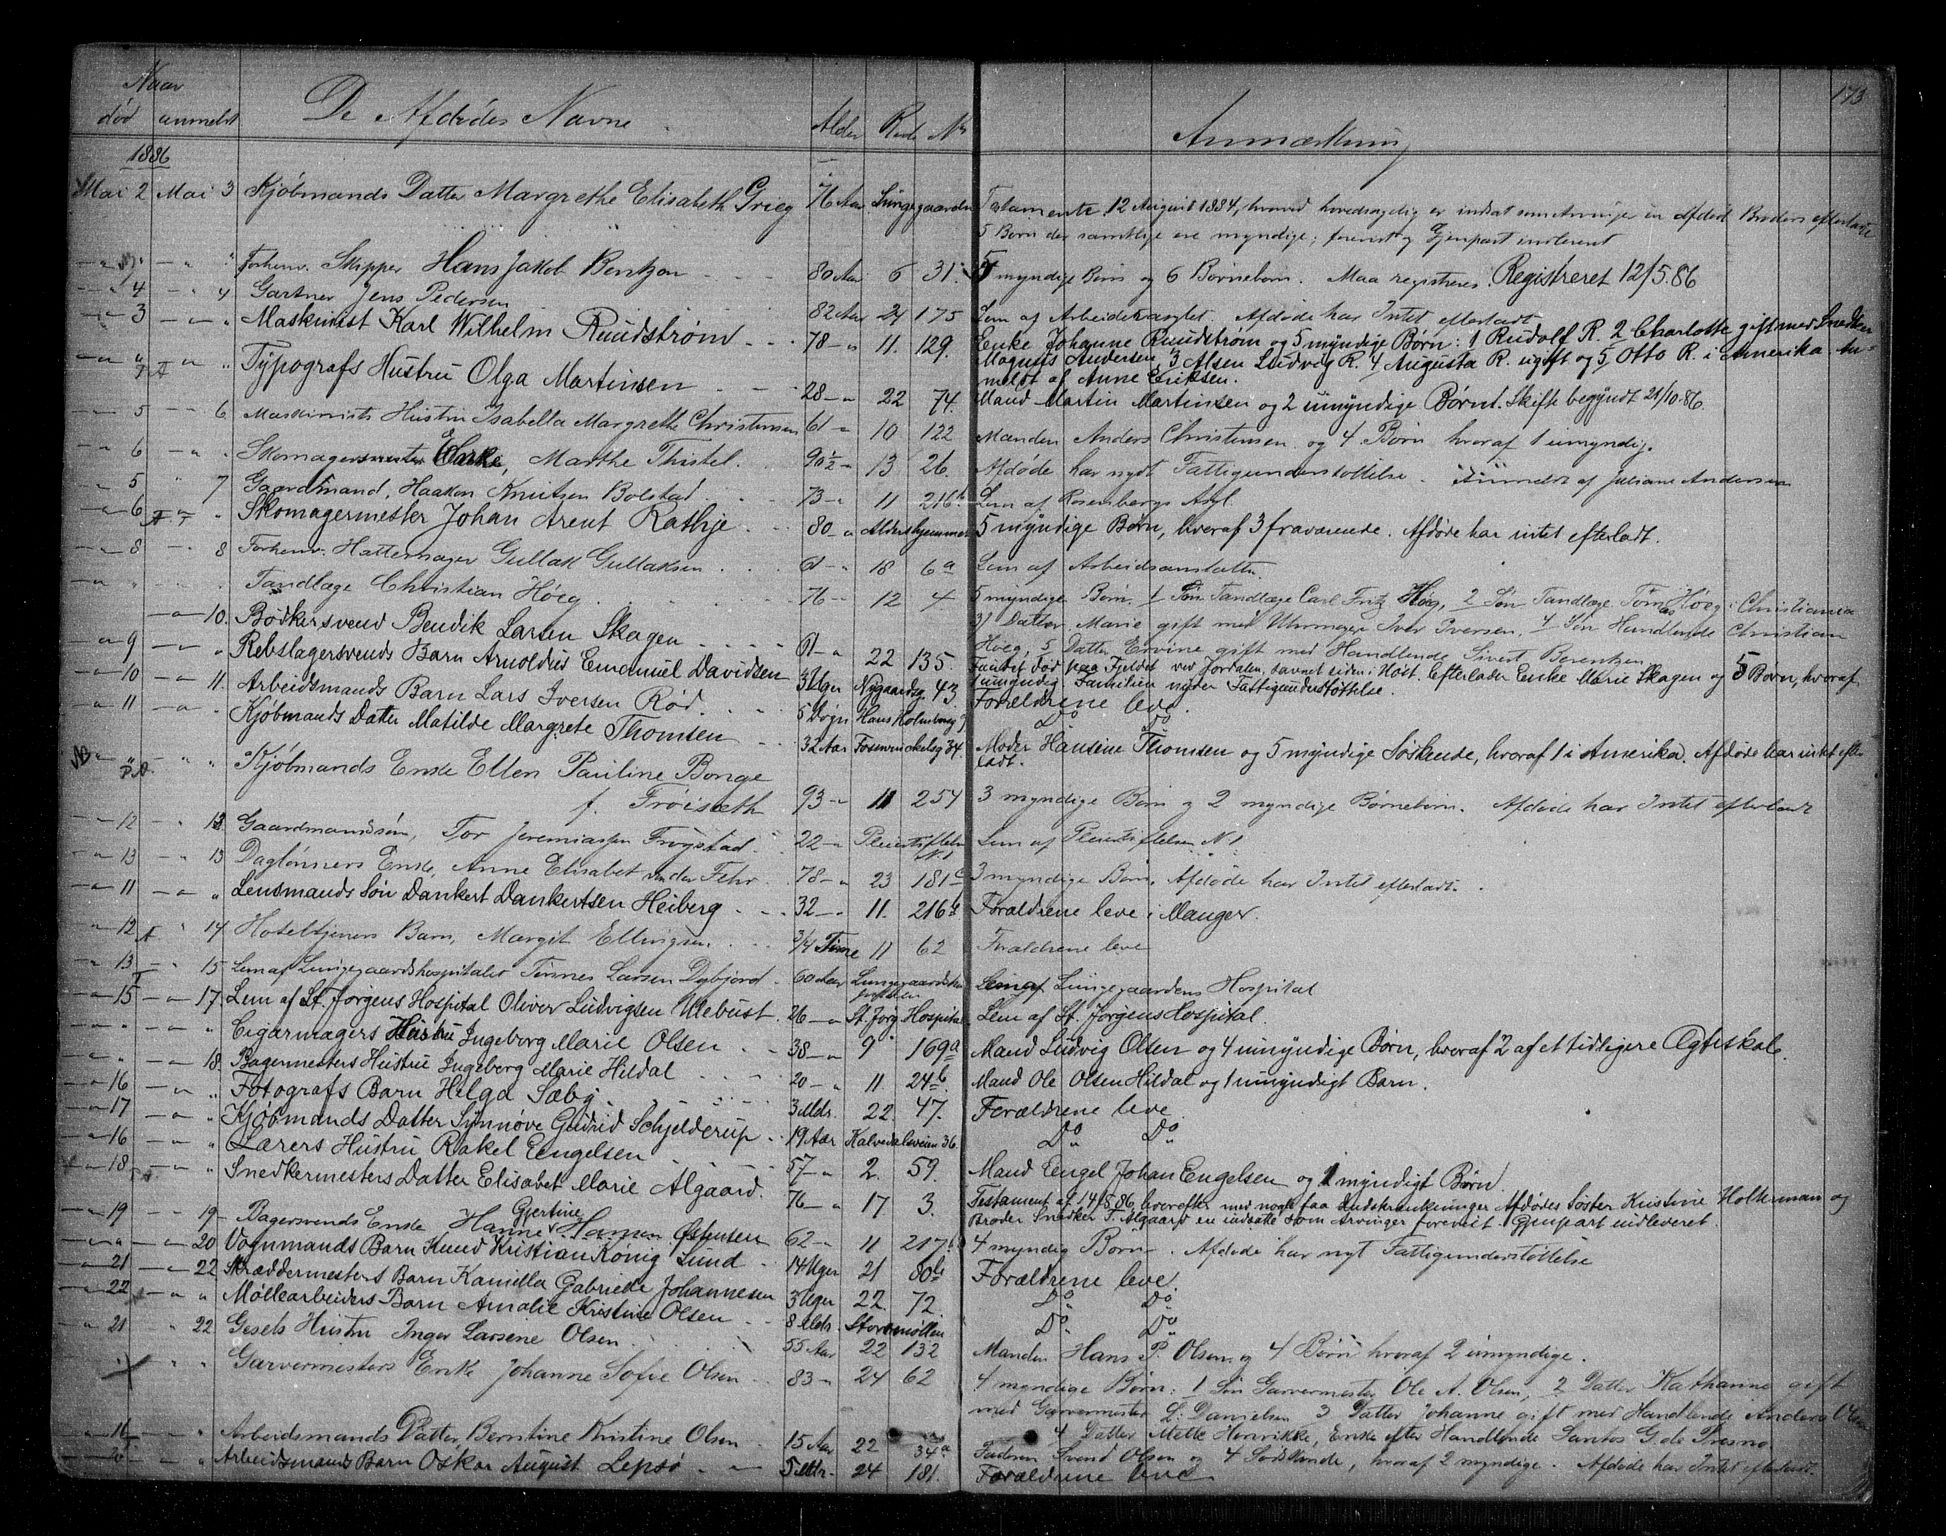 173
Naar
død anmeldt De Afdødes Navne. Alder Rode No Anmærkning
1886
Mai 2 Mai 3 Kjøbmands Datter Margrethe Elisabeth Grieg 76 Aar Lungegaarden Testamente 12 August 1884, hvorved hovedsagelig er indsat som Arvinger en afdød Broders efterladte
5 Børn der samtlige ere myndige; forevist og Gjenpart indleveret
Forhenv. Skipper Hans Jakob Bentzon 80 Aar 6 31 5 myndige Børn og 6 Børnebørn. Maa registreres. Registreret 12/5.86
4 4 Gartner Jens Pedersen 82 Aar 24 175 Lem af Arbeiderasylet. Afdøde har Intet efterladt
3 Maskinist Karl Wilhelm Ruudstrøm 78 11. 129. Enke Johanne Ruudstrøm og 5 myndige Børn: 1 Rudolf R. 2 Charlotte gift med Snedker
Magnus Andersen, 3 Alsen Ludvig R. 4 Augusta R. ugift og 5 Otto R. i Amerika. An-
meldt af Anne Eriksen.
Typografs Hustru Olga Martinsen 28 22 74. Mand Martin Martinsen og 2 umyndige Børn. Skifte begyndt 21/10.86.
5 6 Maskinists Hustru Isabella Margrethe Christensen 61 10 122 Manden Anders Christensen og 4 Børn hvoraf 1 umyndig.
6 Skomagermester Enke, Marthe Thistel. 90 1/2 13 26. Afdøde har nydt Fattigunderstøttelse. Anmeldt af Juliane Andersen
5 7 Gaardmand, Haakon Knutsen Bolstad. 73 11 216 b Lem af Rosenbergs Asyl.
6 Skomagermester Johan Arent Rathje 80 Aldershjemmet 5 myndige Børn, hvoraf 3 fraværende. Afdøde har intet efterladt.
8 8 Forhenv. Hattemager Gullak Gullaksen 61 18 6a Lem af Arbeidsanstalten.
Tandlæge Christian Høeg 76 12 4 5 myndige Børn. 1 Søn Tandlæge Carl Fritz Høeg, 2 Søn Tandlæge Tønnes Høeg i Christiania
3) Datter Marie gift med Uhrmager Iver Iversen, 4 Søn Handlende Christian
Høeg, 5 Datter Ervine gift med Handlende Sivert Berentzen
10. Bødkersvend Bendik Larsen Skagen 61 22 135. Fundet død paa Fjeldet ved Jordalen, savnet siden i Høst. Efterlader Enke Marie Skagen og 5 Børn, hvoraf
1 umyndig Familien nyder Fattigunderstøttelse.
9 Rebslagersvends Barn Arnoldus Emanuel Davidsen 3 Uger Nygaardsg. 43. Forældrene leve.
10 11. Arbeidsmands Barn Lars Iversen Rød. 5 Døgn Hans Holmboesg Do Do
11 Kjøbmands Datter Matilde Margrete Thomsen 32 Aar Fosswinckelsg 34. Moder Hansine Thomsen og 5 myndige Søskende, hvoraf 1 i Amerika. Afdøde har intet efter
ladt.
NB Kjøbmands Enke Ellen Pauline Bonge
f. Frøiseth 93 11 254 3 myndige Børn og 2 myndige Børnebørn. Afdøde har Intet efterladt
12 13 Gaardmandssøn, Tor Jeremiassen Frøystad. 22 Pleiestiftelsen No 1 Lem af Pleiestiftelsen No 1
13 13 Dagløners Enke, Anne Elisabet von der Fehr 78 23 181 c 3 myndige Børn. Afdøde har Intet efterladt.
11 Lensmands Søn Dankert Dankertsen Heiberg 32 11. 216 a Forældrene leve i Manger.
12 14 Hoteltjeners Barn, Margit Ellingsen 3/4 Time 11 62 Forældrene leve
13 15 Lem af Lungegaardshospitalet Tønnes Larsen Dybfjord. 60 Aar Lungegaardshospitalet Lem af Lungegaardens Hospital
15 17. Lem af St. Jørgens Hospital Oliver Ludvigsen Ulebust. 26 St. Jørg. Hospital Lem af St. Jørgens Hospital.
Cigarmagers Hustru Ingeborg Marie Olsen 38 9 169 a Mand Ludvig Olsen og 4 umyndige Børn, hvoraf 2 af et tidligere Ægteskab.
18. Bagermesters Hustru Ingeborg Marie Hildal 20 11 24 b. Mand Ole Olsen Hildal og 1 umyndigt Barn.
16 Fotografs Barn Helga Sæby 3 Mdr. 22. 47. Forældrene leve.
17 Kjøbmands Datter Synnøve Gudrid Schjelderup 19 Aar Kalvedalsveien 36. Do Do
16 Lærers Hustru Rakel Eengelsen 57 2. 59. Mand Eengel Johan Engelsen og 1 myndigt Børn
18 Snedkermesters Datter Elisabet Marie Algaard. 76 17 3. Testament af 14/5.86, hvorefter med nogle faa Indskrænkninger Afdødes Søster Kristine Holterman og
Broder Snedker P. Algaard ere indsatte som Arvinger forevist. Gjenpart indleveret.
19 19 Bagersvends Enke Hanne Gjertine Østensen 62 11 217 b 4 myndig Børn. Afdøde har nyt Fattigunderstøttelse
20 Vognmands Barn Knud Kristian König Lund 14 Uger 21 80 b Forældrene leve.
21 22 Skræddermesters Barn Kamilla Gabrielle Johannesen 3 Uger 22. 72. Do Do
22 Møllearbeiders Barn Amalie Kristine Olsen 8 Mdr. Storemøllen Do Do
21 22 Gesels Hustru Inger Larsene Olsen 55 Aar 22 132 Manden Hans P. Olsen og 4 Børn hvoraf 2 umyndige.
Garvermesters Enke Johanne Sofie Olsen 83 24 62 4 myndige Børn: 1 Søn Garvermester Ole A. Olsen, 2 Datter Kathanne gift
med Garvermester L. Danielsen 3 Datter Johanne gift med Handlende Anders Olsen
4 Datter Mette Henrikke, Enke efter Handlende Santos G. de Presno
16 Arbeidsmands Datter, Berntine Kristine Olsen 15 Aar 22 34 a Faderen Svend Olsen og 4 Sødskende, hvoraf 2 myndige. Afdøde har Intet efterladt.
20 Arbeidsmands Barn Oskar August Lepsø 5 Mdr. 24 181. Forældrene leve